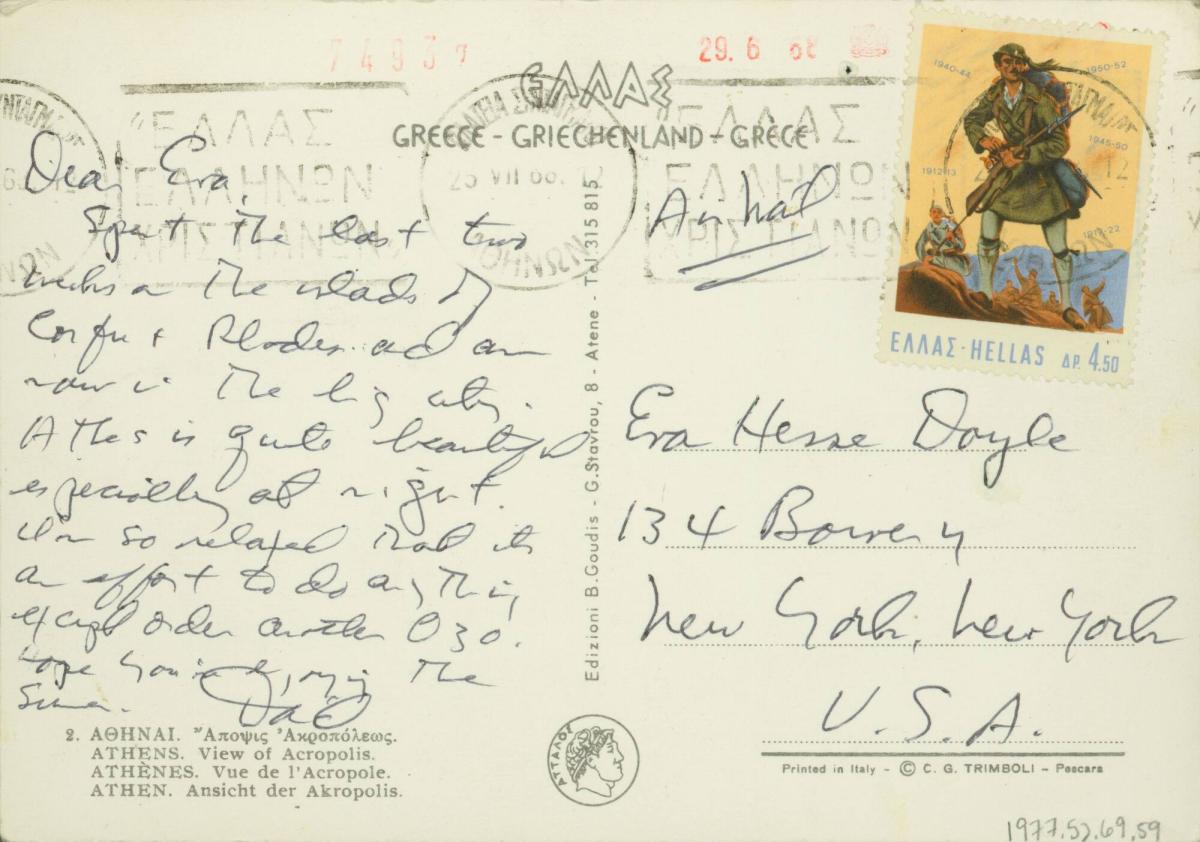 7493
29. 6 68
ΕΛΛΑΣ
GREECE - GRIECHENLAND - GRÈCE
"ΕΛΛΑΣ
ΕΛΛΗΝΩΝ
ΧΡΙΣΤΙΑΝΩΝ
25 VII 68. 12
ΑΘΗΝΩΝ
ΕΛΛΑΣ
ΕΛΛΗΝΩΝ
ΧΡΙΣΤΙΑΝΩΝ
1940-44
1950-52
1945-50
1912-13
1917-22
ΕΛΛΑΣ · HELLAS ΔΡ. 4.50
Dear Eva,
Spent the last two
weeks on the islands of
Corfu + Rhodes and am
now in the big city.
Athens is quite beautiful
especially at night.
I'm so relaxed that its
an effort to do anything
except order another OZO.
Hope you're enjoying the
Summer.
Air Mail
Eva Hesse Doyle
134 Bowery
New York, New York
U.S.A.
Edizioni B. Goudis - G. Stavrou, 8 - Atene - Tel 315 815
2. ΑΘΗΝΑΙ. Ἄποψις Ἀκροπόλεως.
ATHENS. View of Acropolis.
ATHÈNES. Vue de l'Acropole.
ATHEN. Ansicht der Akropolis.
ΑΤΤΑΛΟΥ
Printed in Italy - © C. G. TRIMBOLI - Pescara
1977.52.69.59